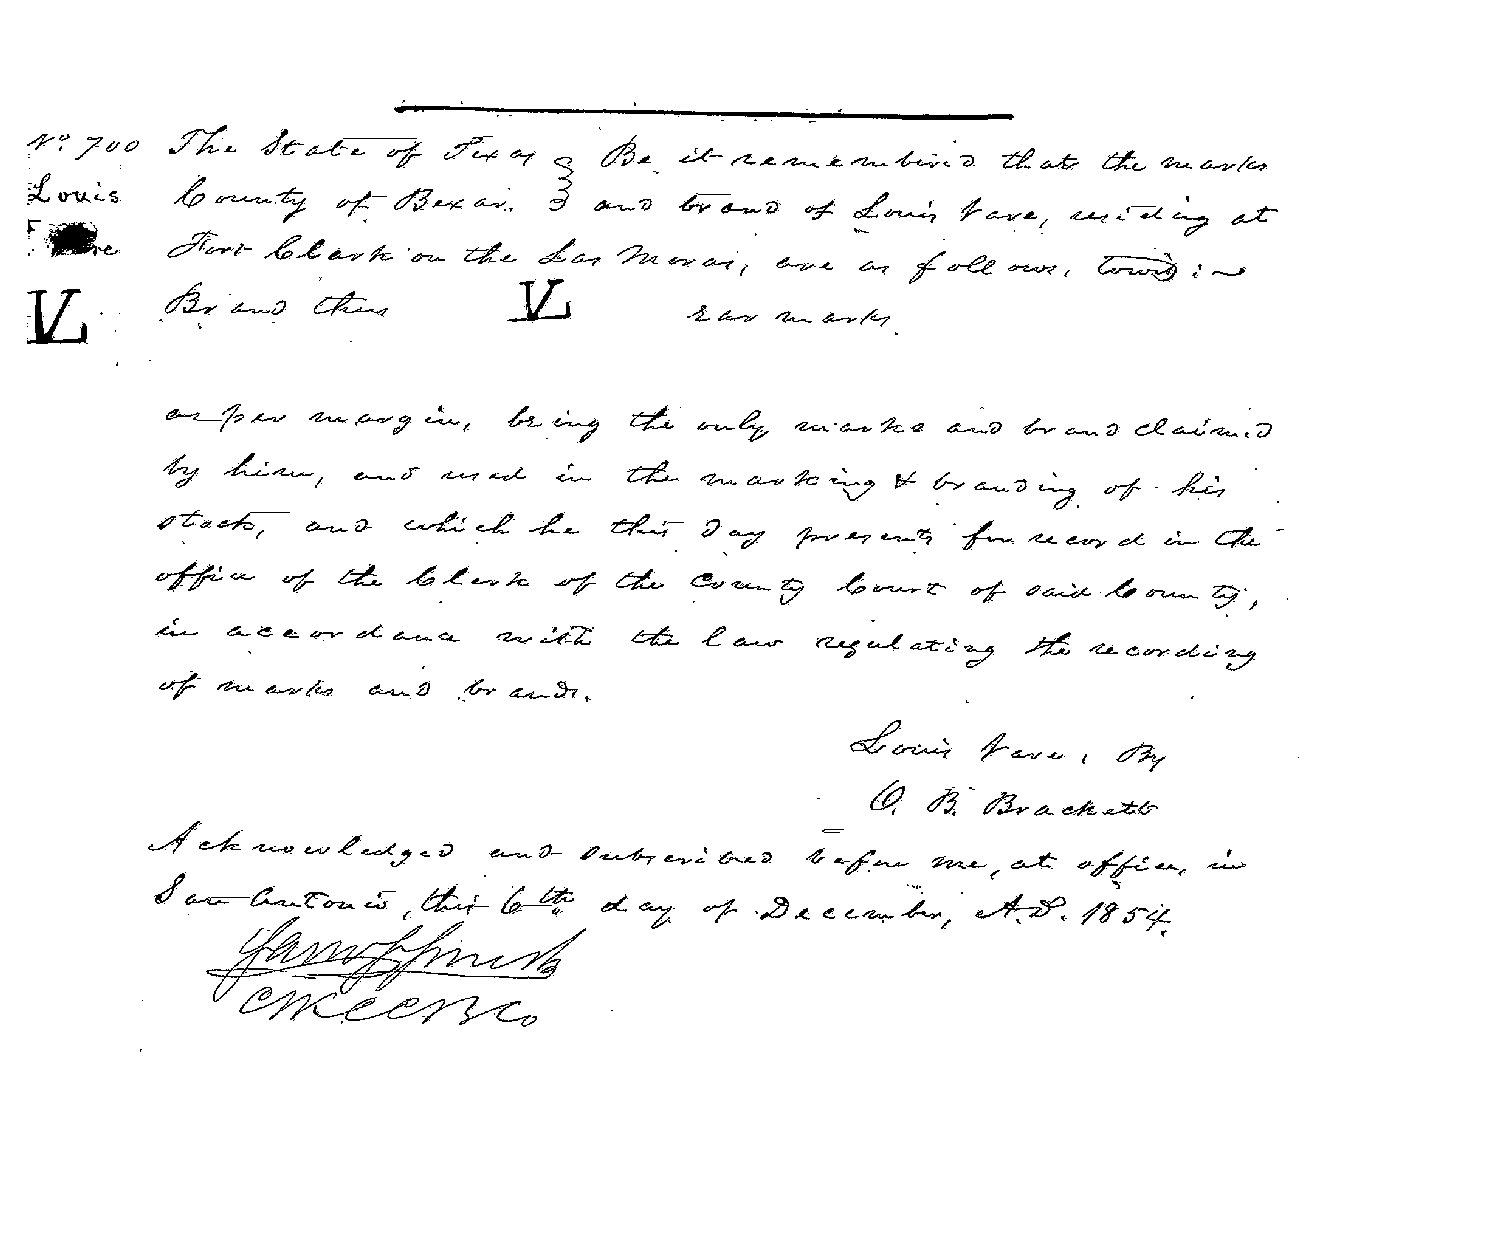 No. 700 The State of Texas } Be it remembered that the marks
Louis County of Bexar. } and brand of Louis Vare, residing at
Fort Clark on the Las Moras, are as follows, towit:
VL Brand thus VL ear marks
as per margin, being the only marks and brand claimed
by him, and used in the marking & branding of his
stock, and which he this day presents for record in the
office of the Clerk of the County Court of said County,
in accordance with the law regulating the recording
of marks and brands.
Louis Vare, By
O. B. Brackett
Acknowledged and subscribed before me, at office, in
San Antonio, this 6th day of December, A.D. 1854.
CKCCBCo